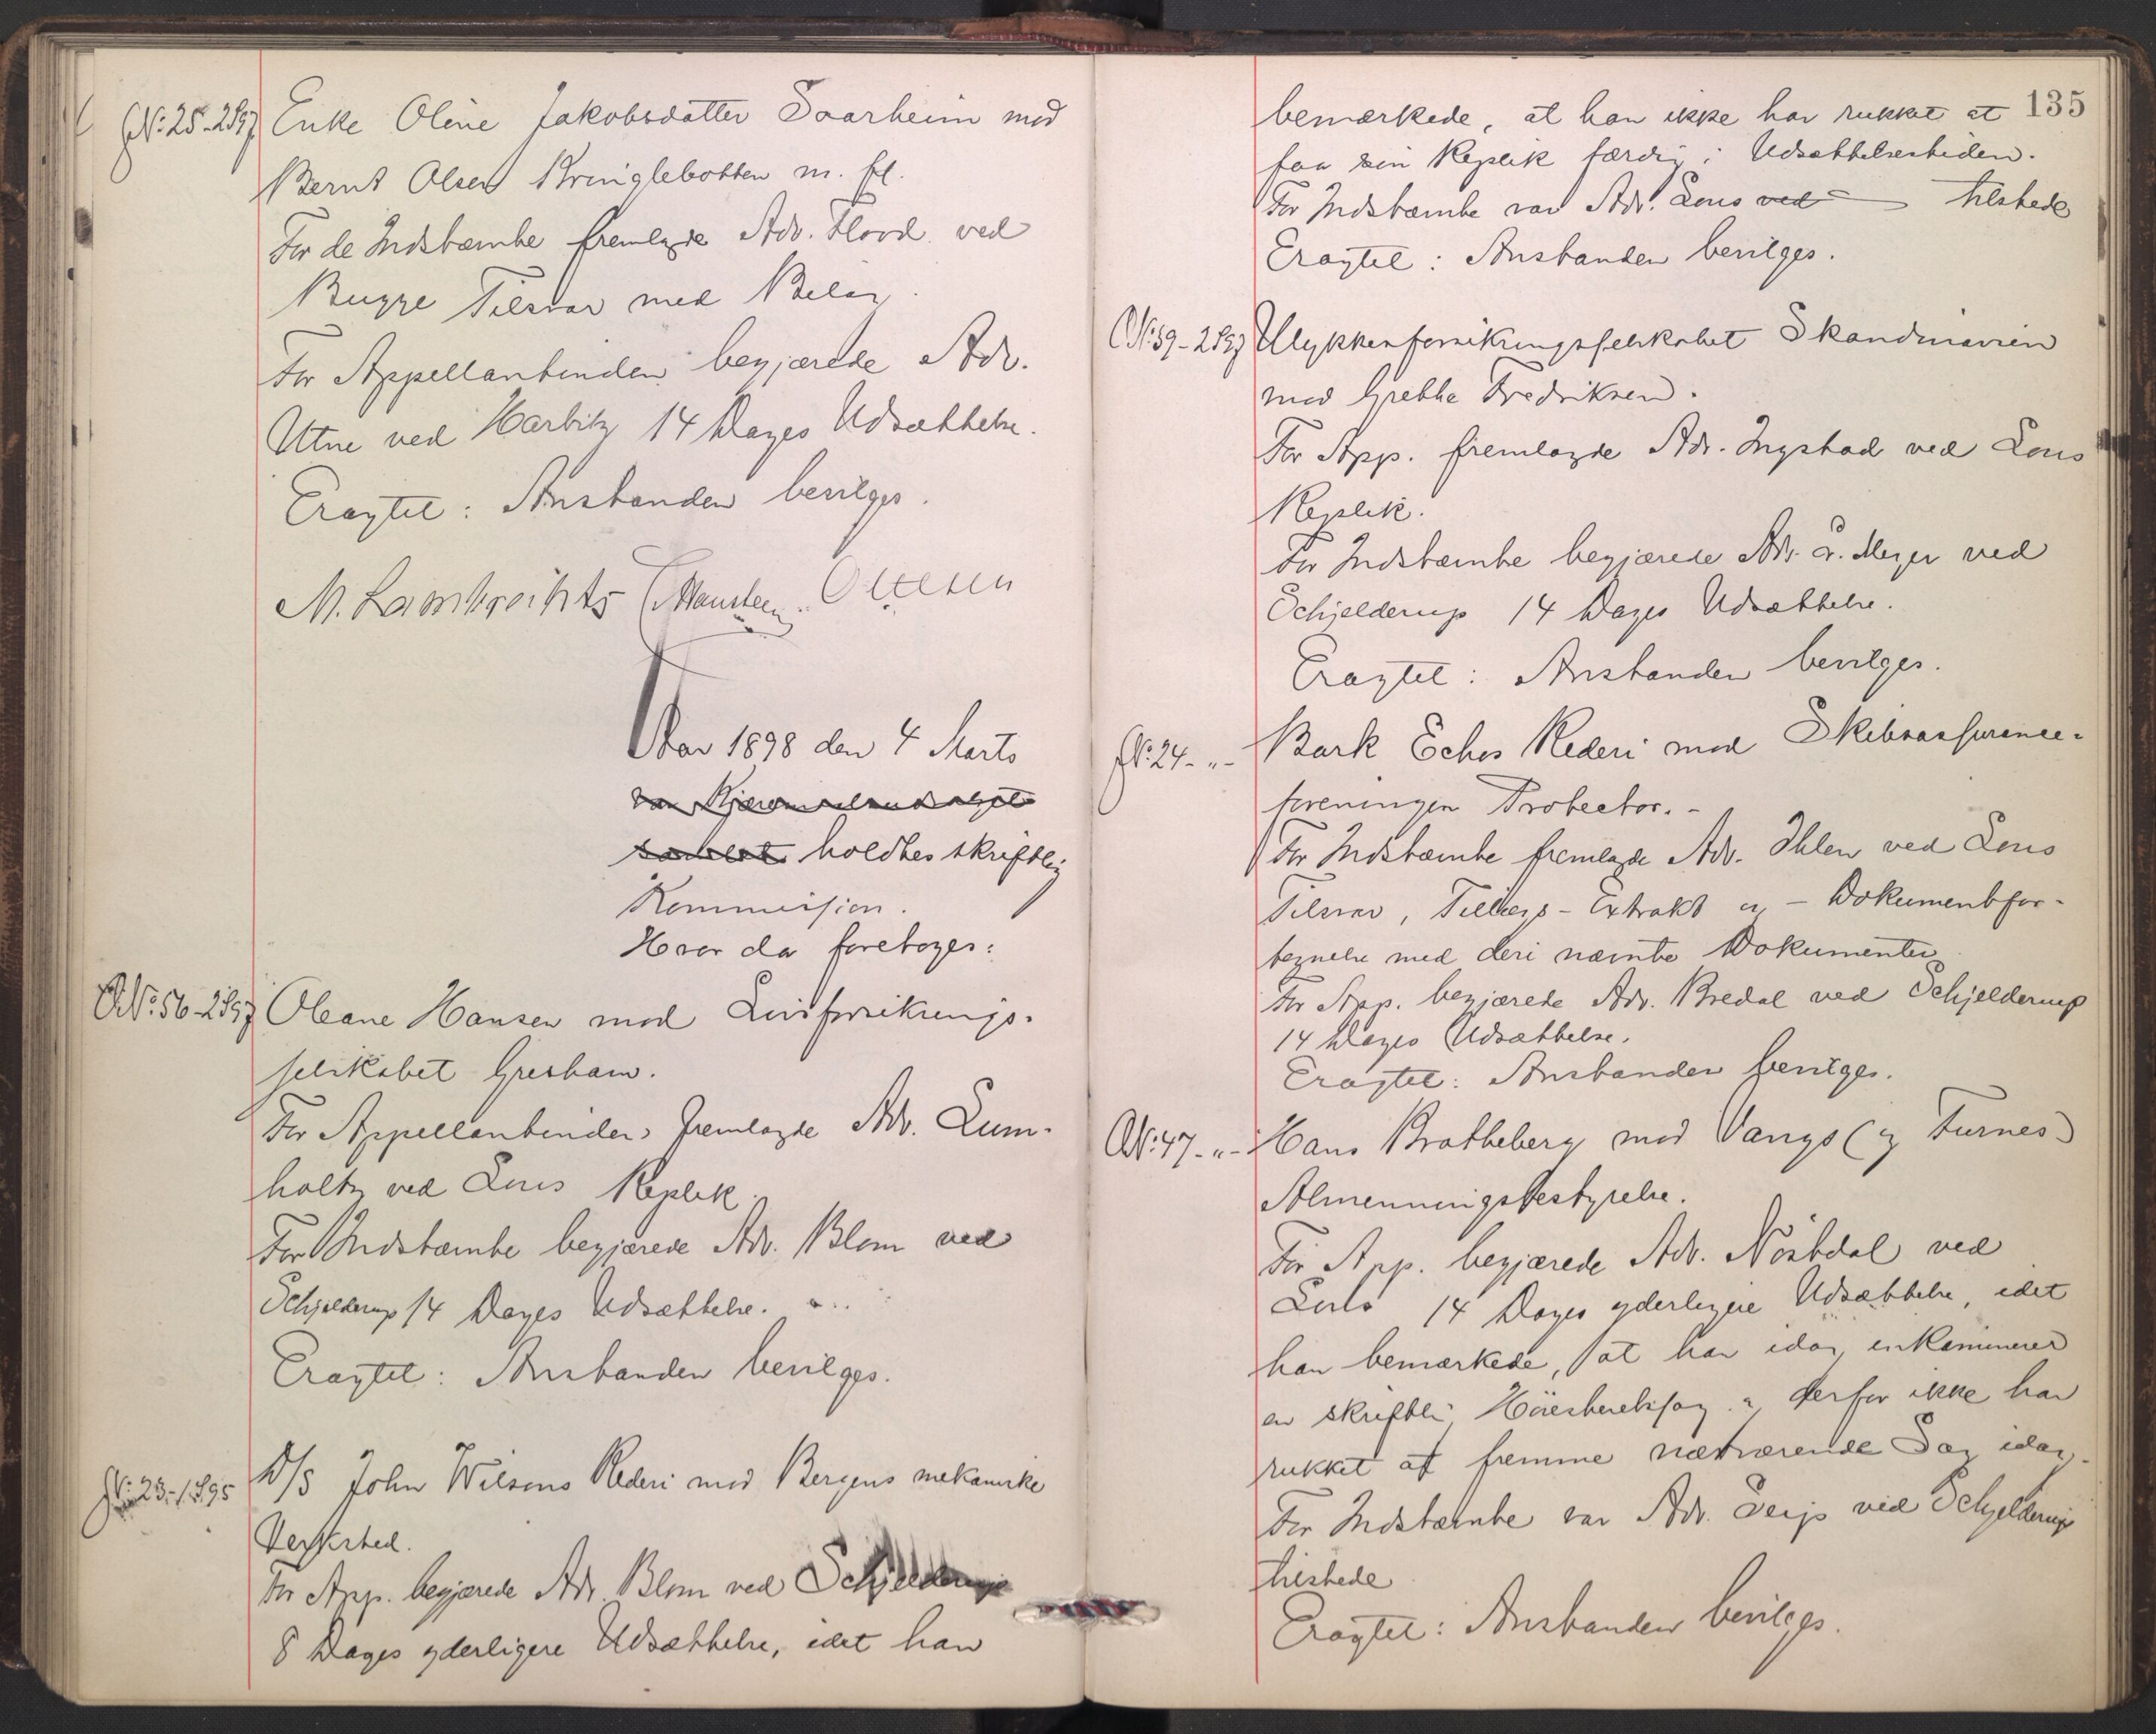 No: 25 - 2/97 Enke Oline Jakobsdatter Saarheim mod
Bernt Olsen Kringlebotten m. fl.
For de Indstævnte fremlagde Adv. Flood ved
Bugge Tilsvar med Bilag.
For Appellantinden begjærede Adv.
Utne ved Harbitz 14 Dages Udsættelse.
Eragtet: Anstanden bevilges.
M. Lambrechts Mausteen Ottesen
Aar 1898 den 4 Marts
holdtes skriftlig
Kommission.
Hvor da foretoges:
No: 56 - 2/97 Oleane Hansen mod Livsforsikrings-
selskabet Gresham.
For Appellantinden fremlagde Adv. Lum-
holtz ved Lous Replik.
For Indstævnte begjærede Adv. Blom ved
Schjelderup 14 Dages Udsættelse.
Eragtet: Anstanden bevilges.
No: 23 - 1/95 D/S John Wilsons Rederi mod Bergens mekaniske
Verksted.
For App. begjærede Adv. Blom ved Schjelderup
8 Dages yderligere Udsættelse, idet han
135
bemærkede, at han ikke har rukket at
faa sin Replik færdig i Udsættelsestiden.
For Indstævnte var Adv. Lous ved tilstede
Eragtet: Anstanden bevilges.
No: 59 - 2/97 Ulykkesforsikringsselskabet Skandinavien
mod Grethe Fredriksen.
For App. fremlagde Adv. Ingstad ved Lous
Replik.
For Indstævnte begjærede Adv. Meyer ved
Schjelderup 14 Dages Udsættelse.
Eragtet: Anstanden bevilges.
No: 24 - " - Bark Echos Rederi mod Skibsassurance-
foreningen Protector. -
For Indstævnte fremlagde Adv. Ihlen ved Lous
Tilsvar, Tillægs - Extrakt og - Dokumentfor-
tegnelse med deri nævnte Dokumenter
For App. begjærede Adv. Bredal ved Schjelderup
14 Dages Udsættelse.
Eragtet: Anstanden bevilges.
No: 47 - " - Hans Bratteberg mod Vangs (og Furnes)
Almenningsbestyrelse.
For App. begjærede Adv. Nöstdal ved
Lous 14 Dages yderligere Udsættelse, idet
han bemærkede, at han idag inkaminerer
en skriftlig Höiesteretssag og derfor ikke har
rukket at fremme nærværende Sag idag.
For Indstævnte var Adv. Seip ved Schjelderup
tilstede
Eragtet: Anstanden bevilges.